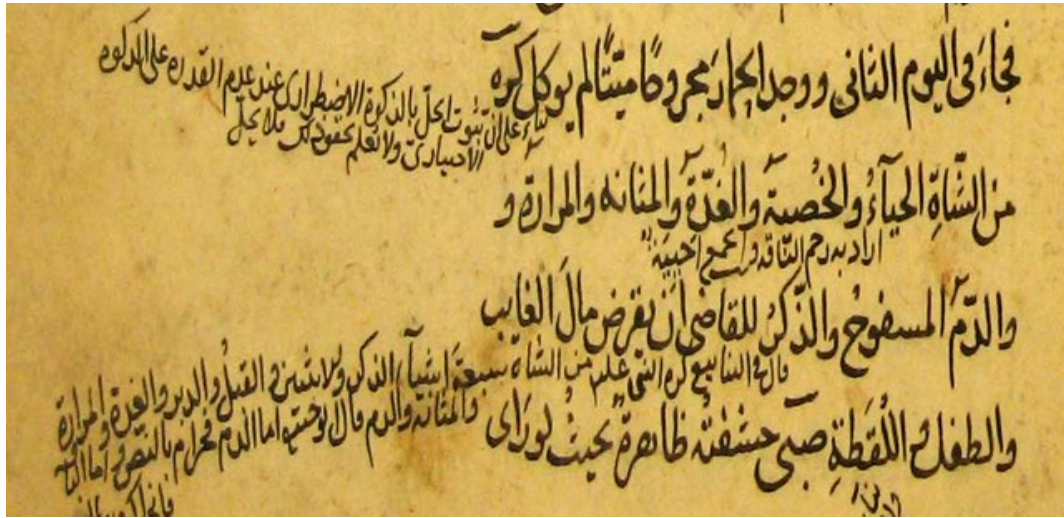 فجاء فى اليوم الثانى ووجد الحمار مجروحًا ميّتًا لم يوكل كره
بناء على ان ثبوت الحل بالذكوة الاضطرارى عند عدم القدره على الذكوه
الاختيارى ولا نعلم
فلا يحل
من الشّاةِ الحيآءُ والخُصيةُ والغُدّةُ والمثانه والمرارة و
اراد به رحم النّاقة والجمع احيية
والدّم المسفوحُ والذّكرُ للقاضى ان يقرض مالَ الغايب
قال فى الينابيع كره النبى علم من الشاة سبعة اشيآء الذكر والانثيين والقبل والدبر والغدة والمرارة
والمثانة والدم قال ابو حنيفة اما الدم فحرام بالنص واما
والطفل واللُّقطةِ صبىّ حشفتُه ظاهرةٌ بحيثُ لو رَاى